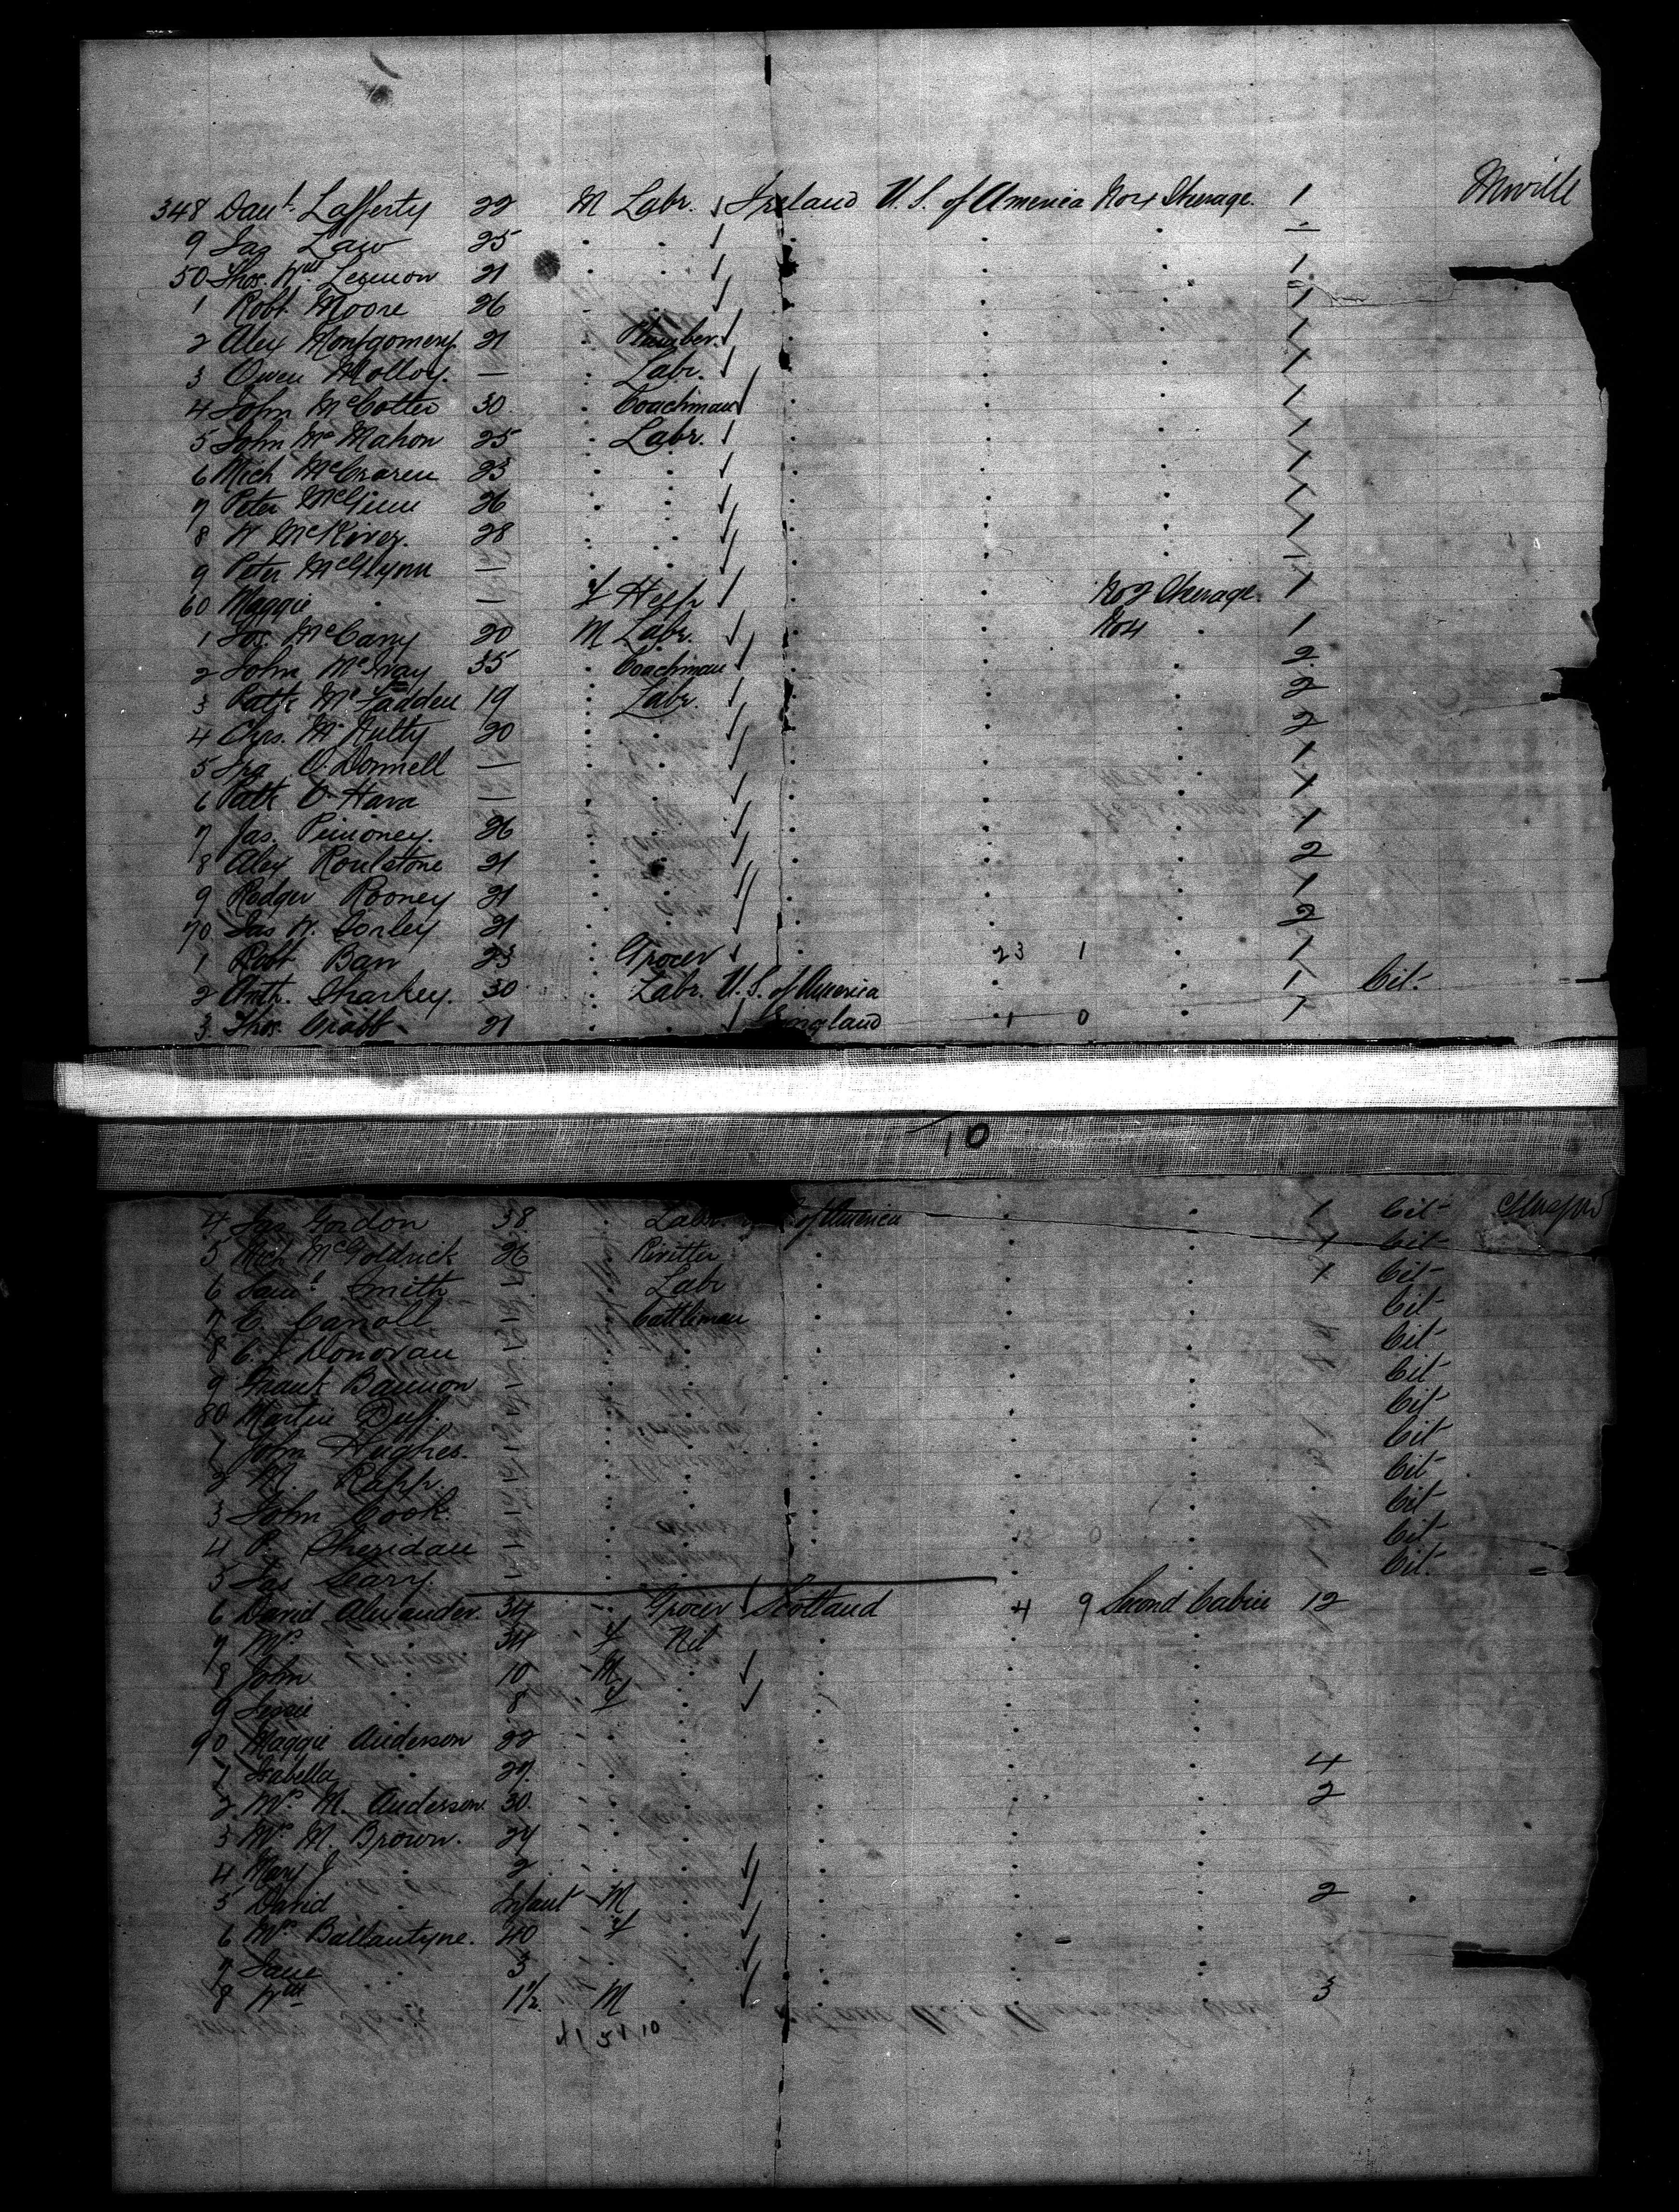 348 Danl. Lafferty 22 M Labr. Ireland U. S. of America No 4 Steerage. 1 Moville
9 Jas Law 25 " " " " " 1
50 Thos. Wm 21 " " " " " 1
1 Robt Moore 26 " " " " " 1
2 Alex Montgomery 21 " Plumber " " " 1
3 Owen Molloy. — " Labr. " " " 1
4 John McCotter 30 " Coachman " " " 1
5 John McMahon 25 " Labr. " " " 1
6 Mich McCraren 23 " " " " " 1
7 Peter McGinn 26 " " " " " 1
8 W 28 " " " " " 1
9 Peter McGlynn — " " " " " 1
60 Maggie " — f Help " " No 2 Steerage. 1
1 Jos. McCarry 20 M Labr. " " No 4 " 1
2 John 35 " Coachman " " " 2
3 Patk McFadden 19 " Labr. " " " 2
4 Chrs. McNulty 20 " " " " " 2
5 O'Donnell — " " " " " 1
6 Patk O'Hara — " " " " " 1
7 Jas. Pimoney. 26 " " " " " 1
8 Alex Roulstone 21 " " " " " 2
9 Rodger Rooney 21 " " " " " 1
70 Jas W. 21 " " " " " 2
1 Robt Barr 23 " Grocer " 23 1 " 1
2 Anth. Sharkey. 30 " Labr. U. S. of America " " 1 Cit.
3 Thos. Crabb 21 " " England 1 0 " 1
10
4 Jas Gordon 38 " Labr. of America " " 1 Cit Glasgow
5 Mich McGoldrick 26 " Rivetter " " " 1 Cit
6 Saml Smith — " Labr " " " 1 Cit
7 C. Carroll — " Cattleman " " " Cit
8 C. J Donovan — " " " " " Cit
9 Frank Bannon — " " " " " Cit
80 Martin Duff. — " " " " " Cit
1 John Hughes. — " " " " " Cit
2 M. Rapp. — " " " " " Cit
3 John Cook. — " " " " " Cit
4 P. Sheridan — " " " " " Cit
5 Jas Leary. — " " " " " Cit.
6 David Alexander. 34 " Grocer Scotland 4 9 Second Cabin 12
7 Mrs " 34 f Nil " " "
8 John " 10 M " " " "
9 Jessie " 8 f " " " "
90 Maggie Anderson 22 " " " " "
1 Isabella " 27. " " " " " 4
2 Mrs M. Anderson 30. " " " " " 2
3 Mrs M. Brown. 24 " " " " "
4 Mary J " 2 " " " " "
5 David " Infant M " " " " 2
6 Mrs Ballantyne. 40 f " " " "
7 Jane " 3 " " " " "
8 Wm " 1½ M " " " " 3